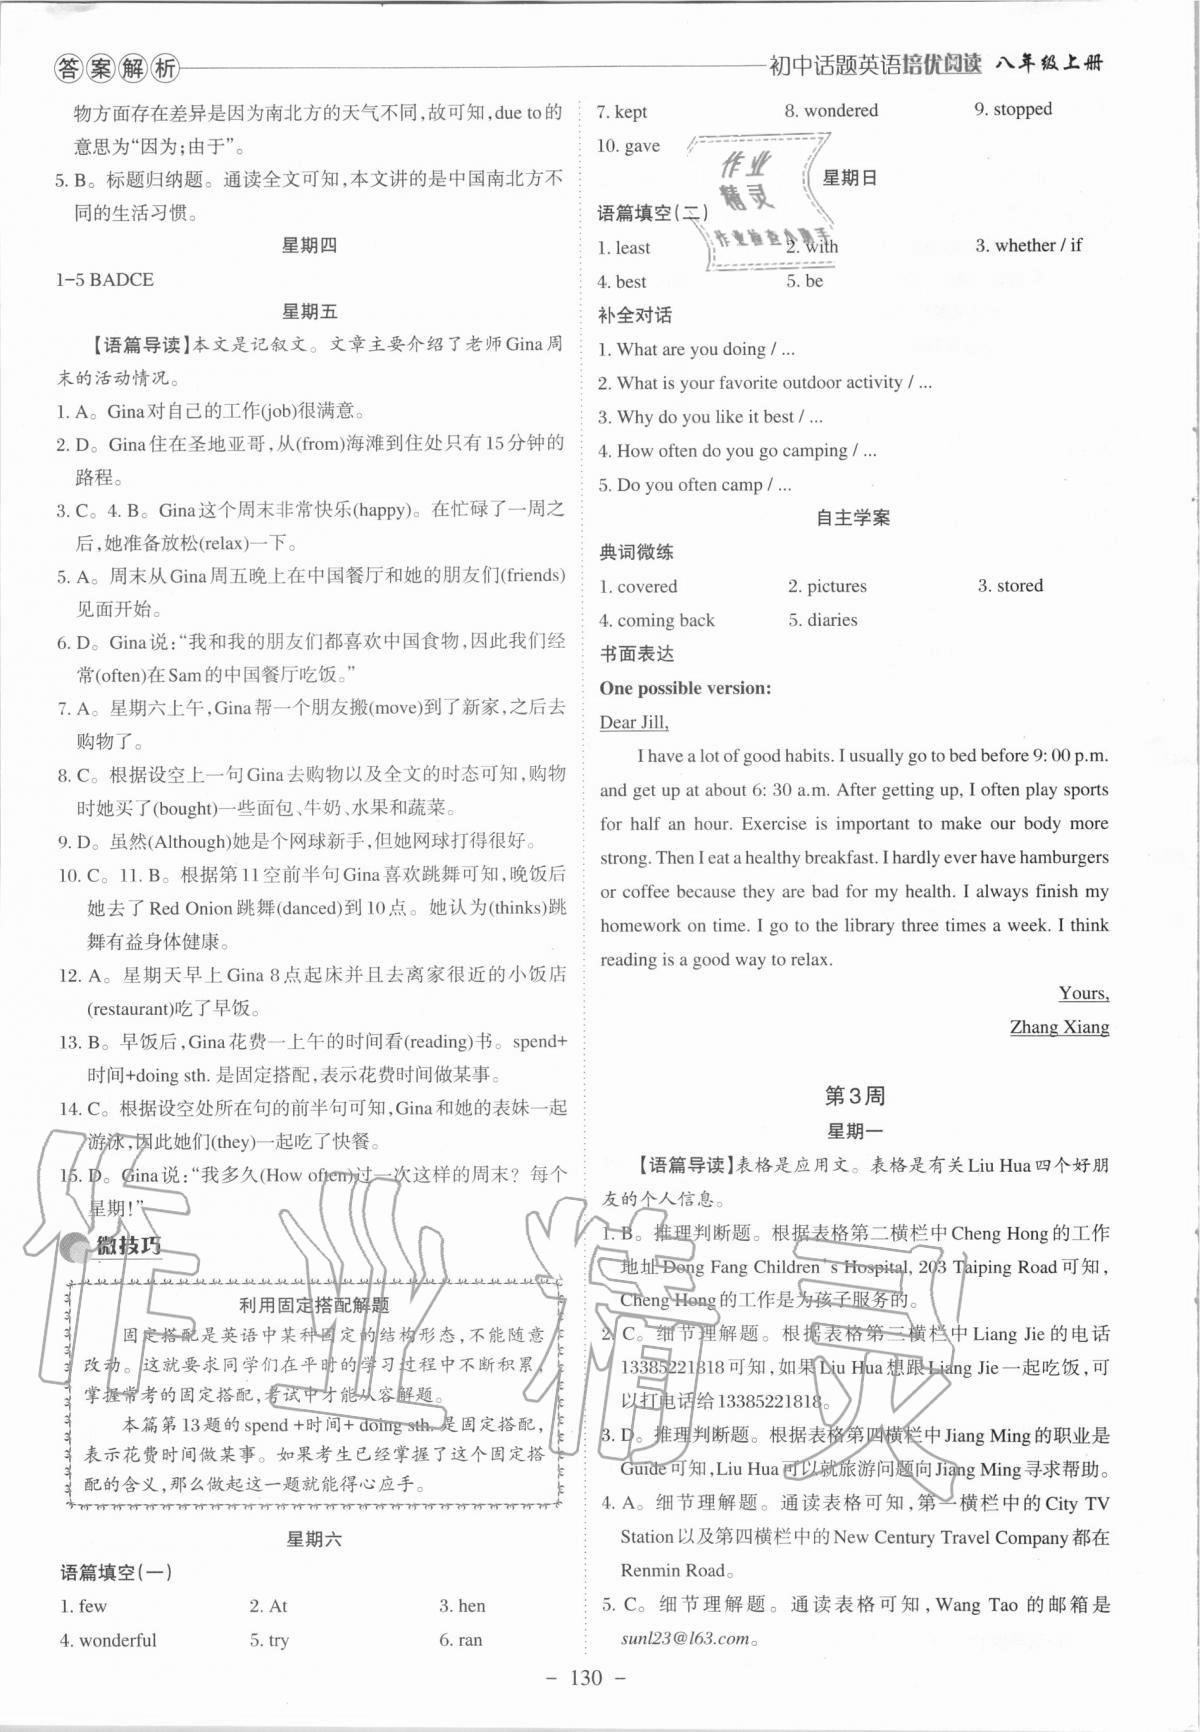 答案解析
初中话题英语培优阅读 八年级上册
物方面存在差异是因为南北方的天气不同,故可知,due to的
意思为“因为;由于”。
5. B。标题归纳题。通读全文可知,本文讲的是中国南北方不
同的生活习惯。
星期四
1-5 BADCE
星期五
【语篇导读】本文是记叙文。文章主要介绍了老师Gina周
末的活动情况。
1. A。Gina对自己的工作(job)很满意。
2. D。Gina住在圣地亚哥,从(from)海滩到住处只有15分钟的
路程。
3. C。4. B。Gina这个周末非常快乐(happy)。在忙碌了一周之
后,她准备放松(relax)一下。
5. A。周末从Gina周五晚上在中国餐厅和她的朋友们(friends)
见面开始。
6. D。Gina说:“我和我的朋友们都喜欢中国食物,因此我们经
常(often)在Sam的中国餐厅吃饭。”
7. A。星期六上午,Gina帮一个朋友搬(move)到了新家,之后去
购物了。
8. C。根据设空上一句Gina去购物以及全文的时态可知,购物
时她买了(bought)一些面包、牛奶、水果和蔬菜。
9. D。虽然(Although)她是个网球新手,但她网球打得很好。
10. C。11. B。根据第11空前半句Gina喜欢跳舞可知,晚饭后
她去了Red Onion跳舞(danced)到10点。她认为(thinks)跳
舞有益身体健康。
12. A。星期天早上Gina 8点起床并且去离家很近的小饭店
(restaurant)吃了早饭。
13. B。早饭后,Gina花费一上午的时间看(reading)书。spend+
时间+doing sth. 是固定搭配,表示花费时间做某事。
14. C。根据设空处所在句的前半句可知,Gina和她的表妹一起
游泳,因此她们(they)一起吃了快餐。
15. D。Gina说:“我多久(How often)过一次这样的周末？每个
星期!”
微技巧
利用固定搭配解题
固定搭配是英语中某种固定的结构形态,不能随意
改动。这就要求同学们在平时的学习过程中不断积累,
掌握常考的固定搭配,考试中才能从容解题。
本篇第13题的spend +时间+ doing sth. 是固定搭配,
表示花费时间做某事。如果考生已经掌握了这个固定搭
配的含义,那么做起这一题就能得心应手。
星期六
语篇填空(一)
1. few 2. At 3. hen
4. wonderful 5. try 6. ran
7. kept 8. wondered 9. stopped
10. gave
作业
精灵
作业检查小助手
星期日
语篇填空(二)
1. least 2. with 3. whether / if
4. best 5. be
补全对话
1. What are you doing / ...
2. What is your favorite outdoor activity / ...
3. Why do you like it best / ...
4. How often do you go camping / ...
5. Do you often camp / ...
自主学案
典词微练
1. covered 2. pictures 3. stored
4. coming back 5. diaries
书面表达
One possible version:
Dear Jill,
I have a lot of good habits. I usually go to bed before 9: 00 p.m.
and get up at about 6: 30 a.m. After getting up, I often play sports
for half an hour. Exercise is important to make our body more
strong. Then I eat a healthy breakfast. I hardly ever have hamburgers
or coffee because they are bad for my health. I always finish my
homework on time. I go to the library three times a week. I think
reading is a good way to relax.
Yours,
Zhang Xiang
第3周
星期一
【语篇导读】表格是应用文。表格是有关Liu Hua四个好朋
友的个人信息。
1. B。推理判断题。根据表格第二横栏中Cheng Hong的工作
地址Dong Fang Children's Hospital, 203 Taiping Road可知,
Cheng Hong的工作是为孩子服务的。
2. C。细节理解题。根据表格第三横栏中Liang Jie的电话
13385221818可知,如果Liu Hua想跟Liang Jie一起吃饭,可
以打电话给13385221818。
3. D。推理判断题。根据表格第四横栏中Jiang Ming的职业是
Guide可知,Liu Hua可以就旅游问题向Jiang Ming寻求帮助。
4. A。细节理解题。通读表格可知,第一横栏中的City TV
Station以及第四横栏中的New Century Travel Company都在
Renmin Road。
5. C。细节理解题。通读表格可知,Wang Tao的邮箱是
sunl23@l63.com。
作业精灵
- 130 -